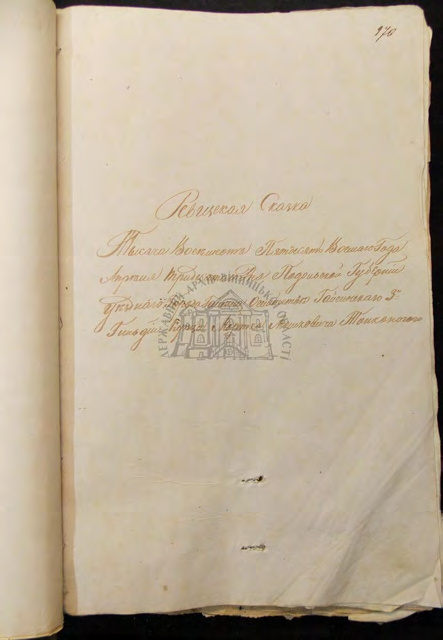 970
Ревизская Сказка
Тысяча Восемьсотъ Пятьдесятъ Восьмаго Года
Апреля Тридцатаго Дня Подольской Губернiи
уезднаго Города Гайсина Гайсинскаго 3й
Гильдiи Купца Мошковича
ДЕРЖАВНИЙ АРХІВ ВІННИЦЬКОЇ ОБЛАСТІ